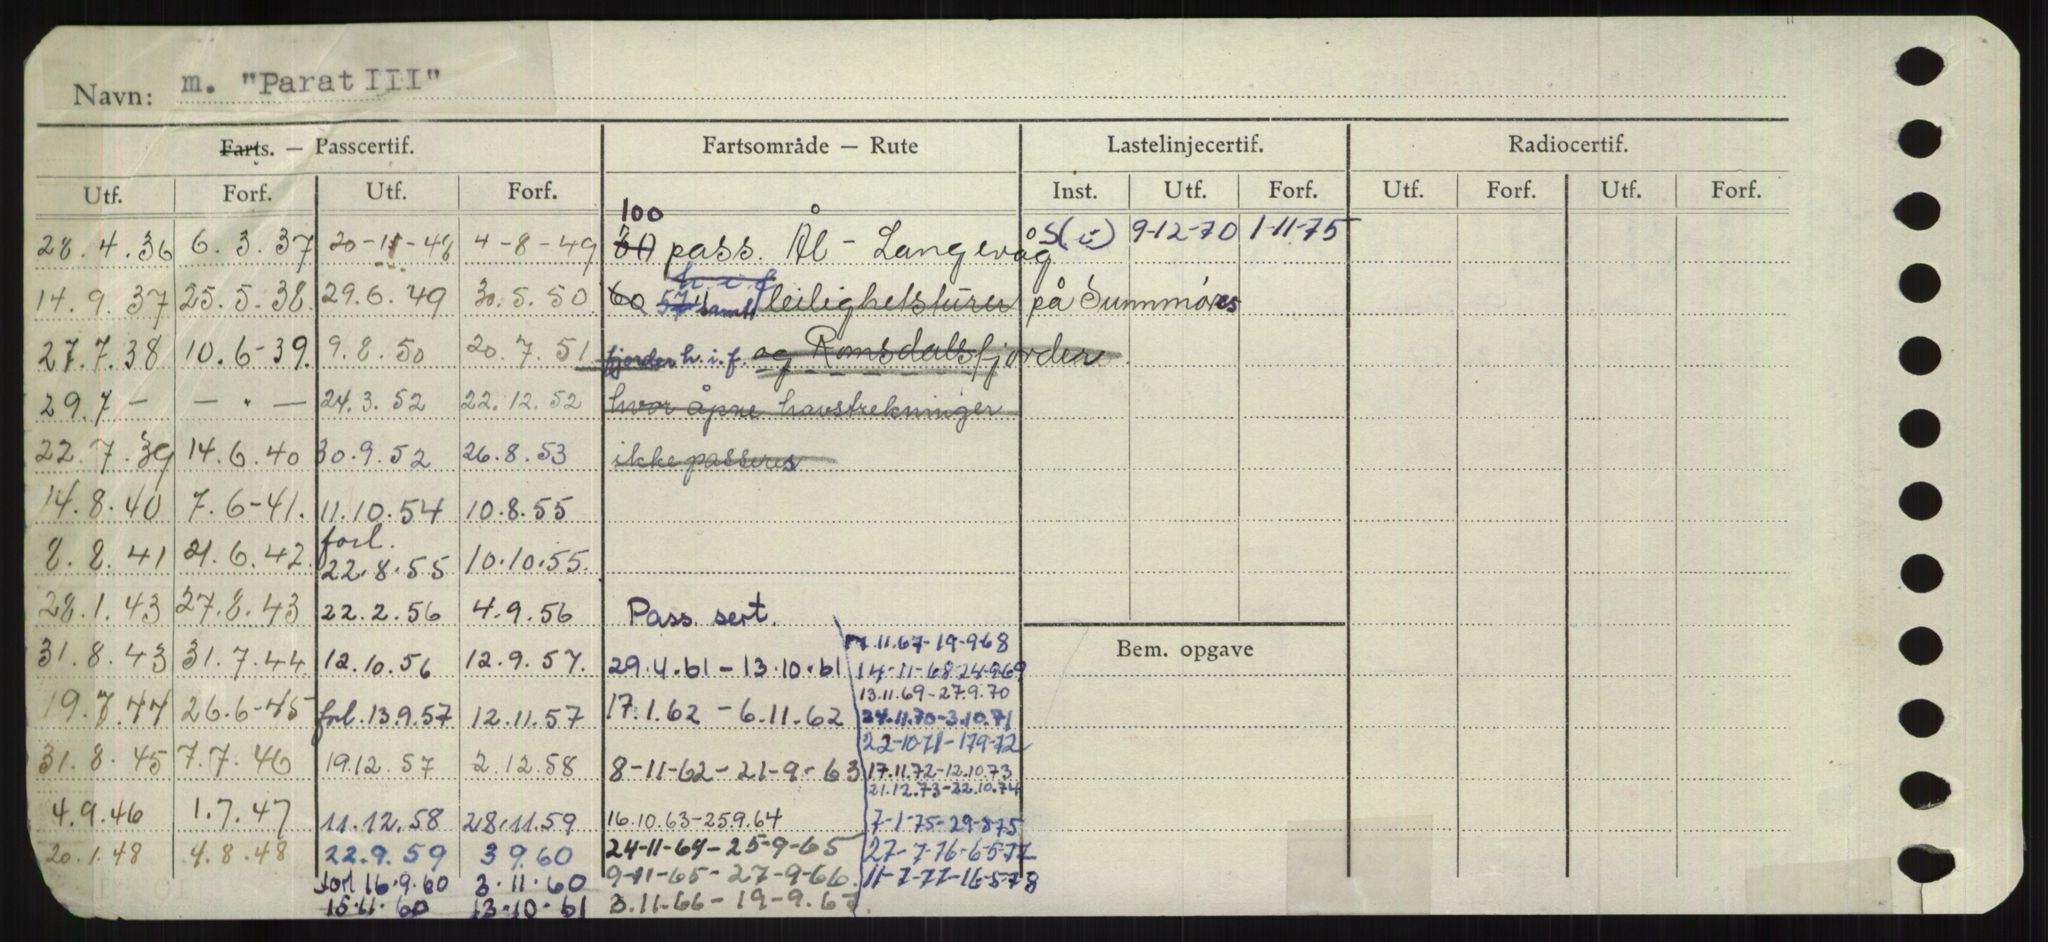 Navn: m. "Parat III"
Farts. — Passcertif. Fartsområde — Rute Lastelinjecertif. Radiocertif.
Utf. Forf. Utf. Forf. Inst. Utf. Forf. Utf. Forf. Utf. Forf.
100
28.4.36 6.3.37 20-11-48 4-8-49 pass. Ål - Langevåg S(i) 9-12-70 1-11-75
h.i.f
14.9.37 25.5.38 29.6.49 30.5.50 60 57 samt leilighetsturer på Sunnmøres
27.7.38 10.6-39. 9.8.50 20.7.51 fjorder h.i.f. og Romsdalsfjorden.
29.7 — — " — 24.3.52 22.12.52 hvor åpne havstrekninger
22.7.39 14.6.40 30.9.52 26.8.53 ikke passeres
14.8.40 7.6-41. 11.10.54 10.8.55
forl.
8.8.41 21.6.42 22.8.55 10.10.55.
28.1.43 27.8.43 22.2.56 4.9.56 Pass. sert.
11.67-19-968
31.8.43 31.7.44 12.10.56 12.9.57. 29.4.61-13.10.61 14-11-68-24-9-69
Bem. opgave
13.11.69-27.9.70
19.7.44 26.6-45 forl. 13.9.57 12.11.57 17.1.62 - 6.11.62 24.11.70-3.10.71
22-10-71-179-72
31.8.45 7.7.46 19.12.57 2.12.58 8-11-62-21-9-63 17.11.72-12.10.73
21.12.73-22.10.74
4.9.46 1.7.47 11.12.58 28.11.59 16.10.63-25.9.64 7-1-75-29-875
20.1.48 4.8.48 22.9.59 3 9.60 24-11-64-25-9-65 27-7-76-6-5-77
forl 16.9.60 3.11.60 9-11-65-27-9-66. 11-7-77-16-5-78
15.11.60 13-10-61 3.11-66-19-9.67.